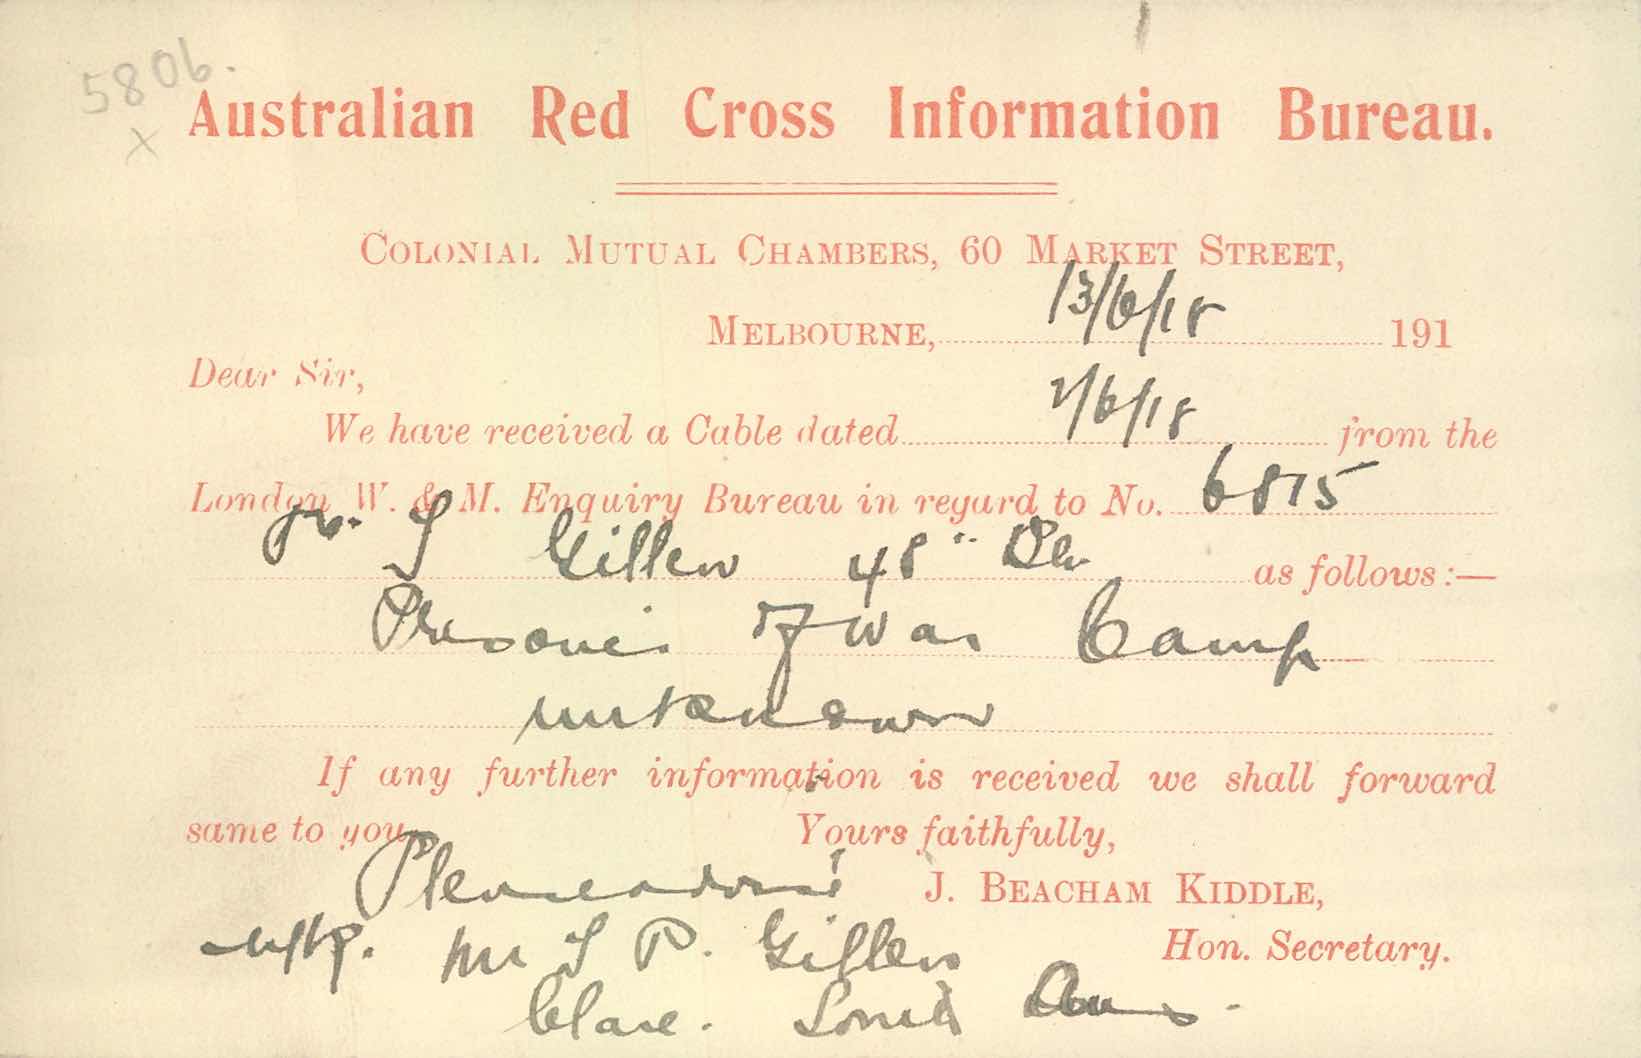 5806.
x
Australian Red Cross Information Bureau.
COLONIAL MUTUAL CHAMBERS, 60 MARKET STREET,
MELBOURNE, 13/6/18 191
Dear Sir,
We have received a Cable dated 7/6/18 from the
London W. & M. Enquiry Bureau in regard to No. 6815
Gillen 48" Bn as follows:—
Prisoner of War Camp
unknown
If any further information is received we shall forward
same to you.
Yours faithfully,
Please advise
J. BEACHAM KIDDLE,
n/k. Mr P. Gillen
Hon. Secretary.
Clare. South Aus.